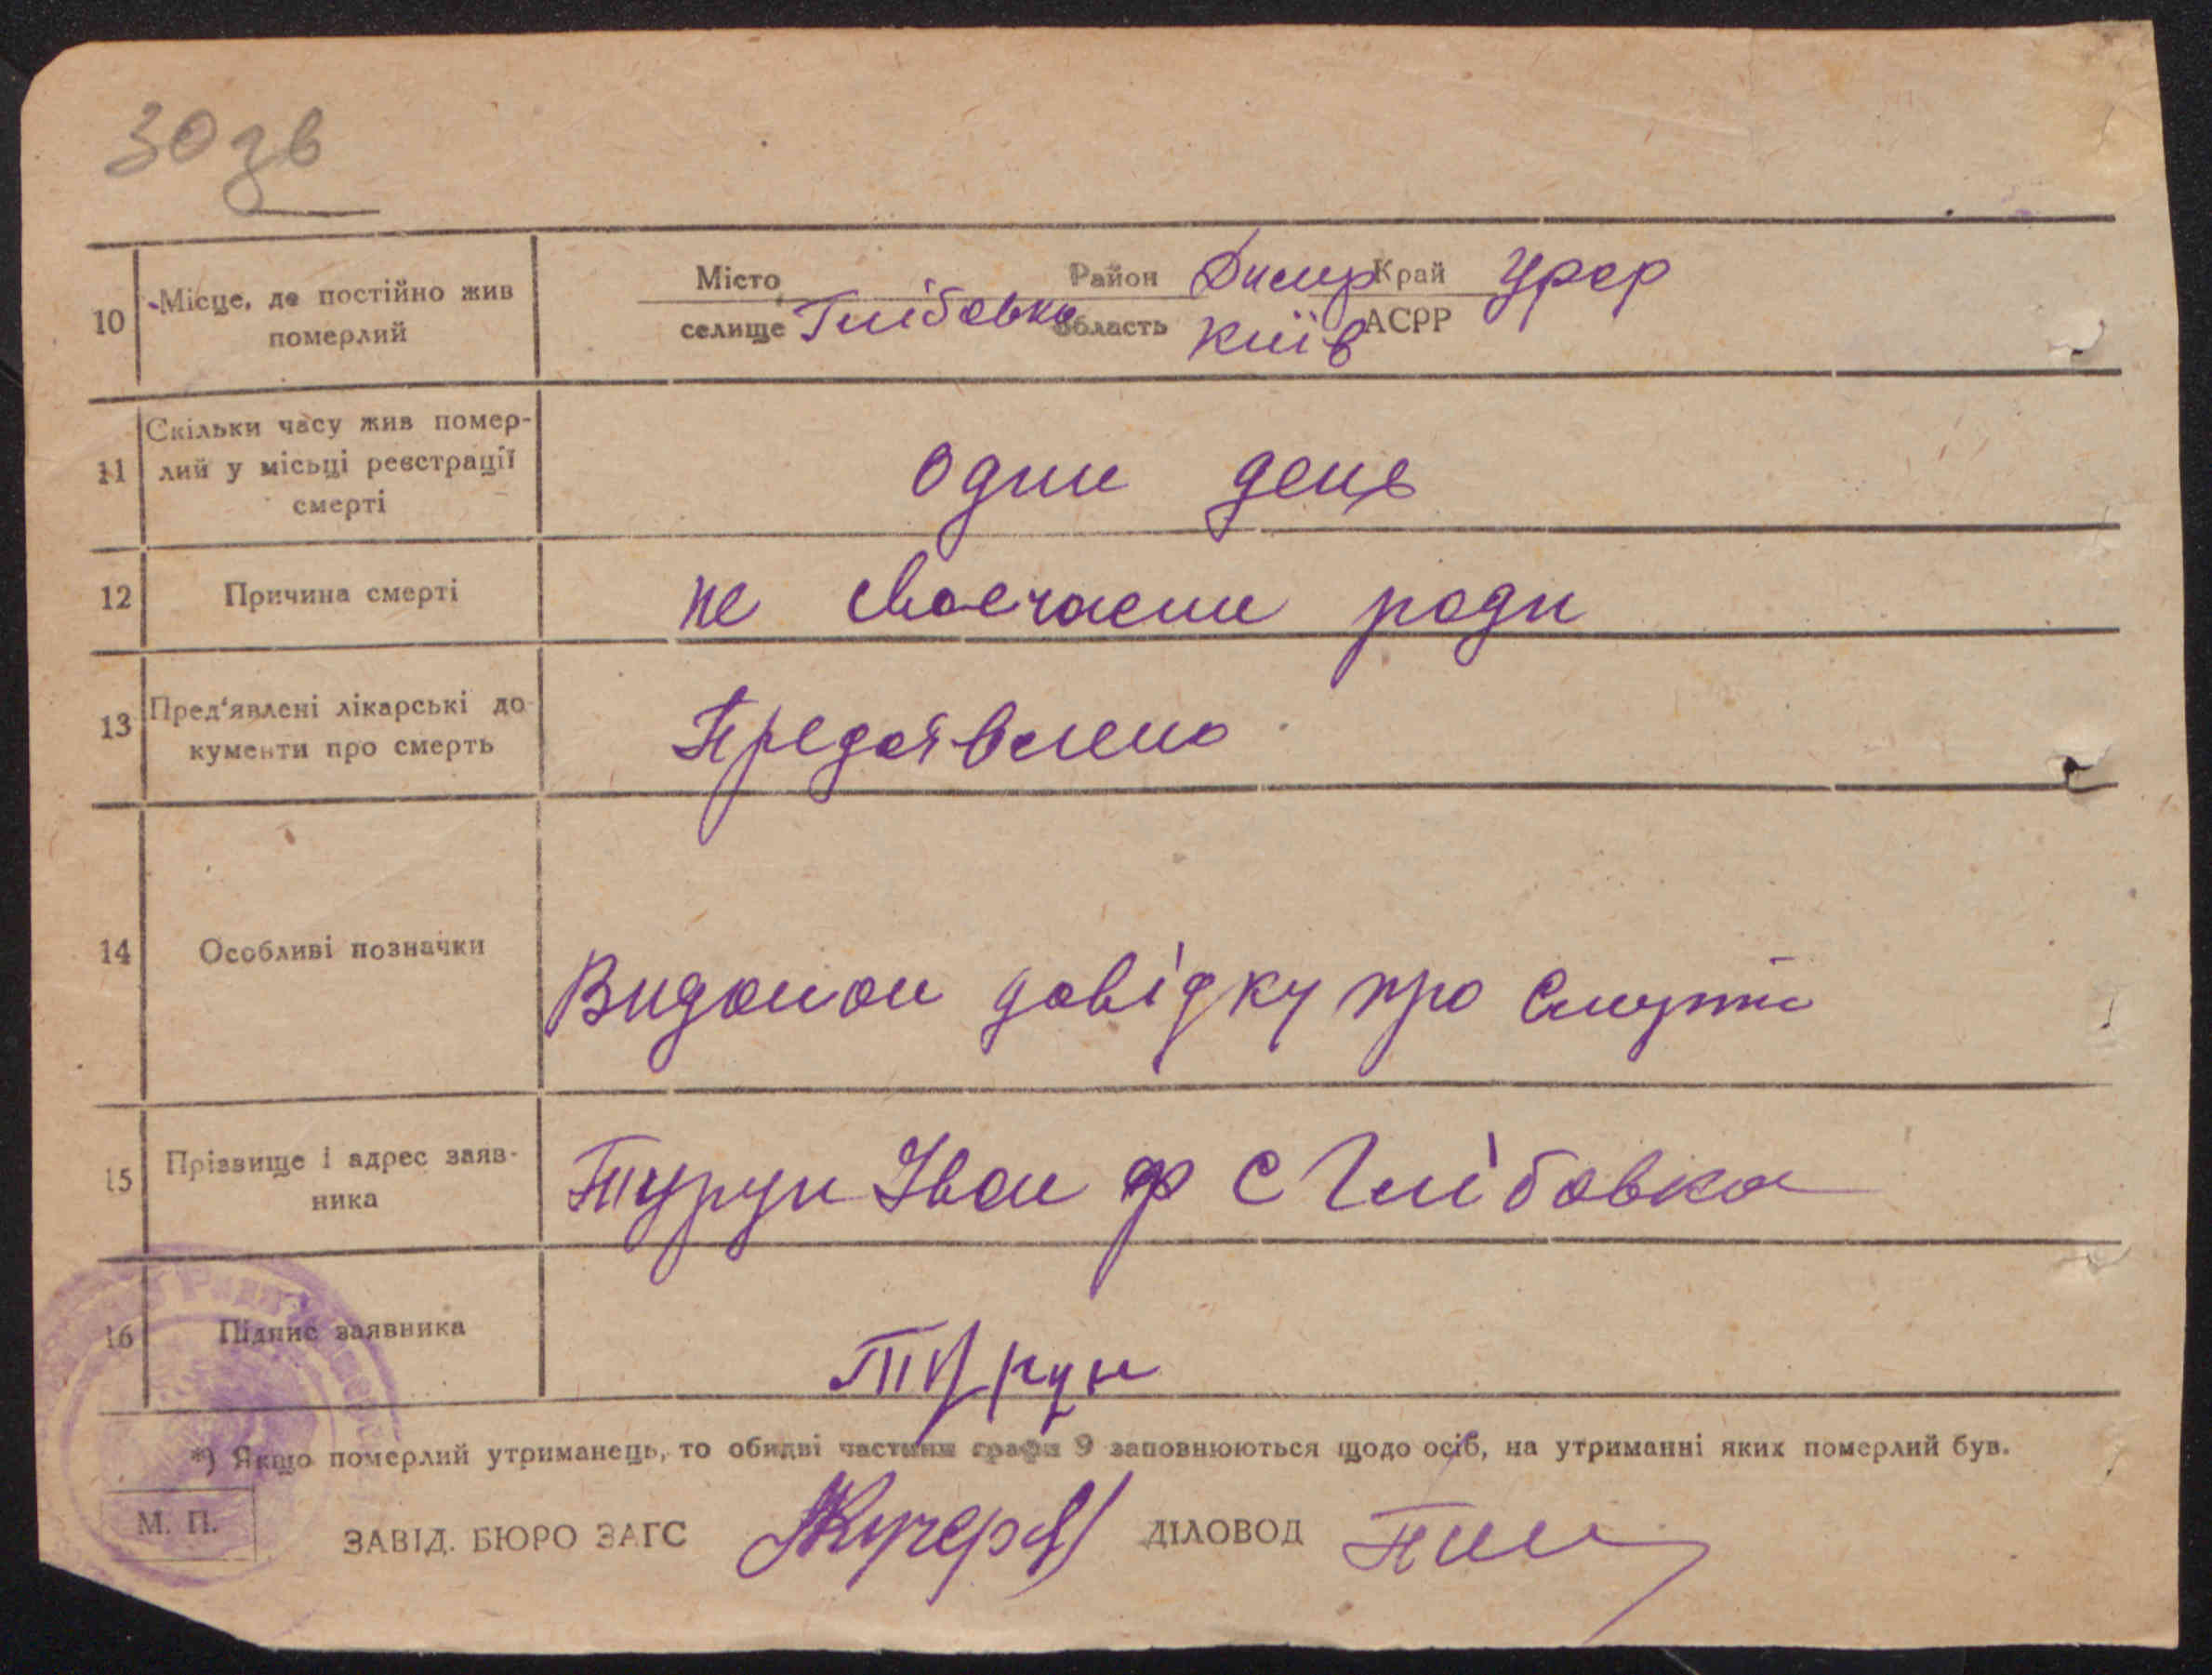 30 зв
10 Місце, де постійно жив
померлий
Місто
селище Глібовка
Район Димер
область Київ
Край
АСРР
УРСР
11 Скільки часу жив помер-
лий у місьці реєстрації
смерті
Один день
12 Причина смерті не своєчасни роди
13 Пред'явлені лікарські до-
кументи про смерть
Предоявлено
14 Особливі позначки
Видонои довідку про
15 Прізвище і адрес заяв-
ника
Турун Іван Ф с Глібовка
16 Підпис заявника Турун
*) Якщо померлий утриманець, то обидві частини графи 9 заповнюються щодо осіб, на утриманні яких померлий був.
М. П.
ЗАВІД. БЮРО ЗАГС ДІЛОВОД